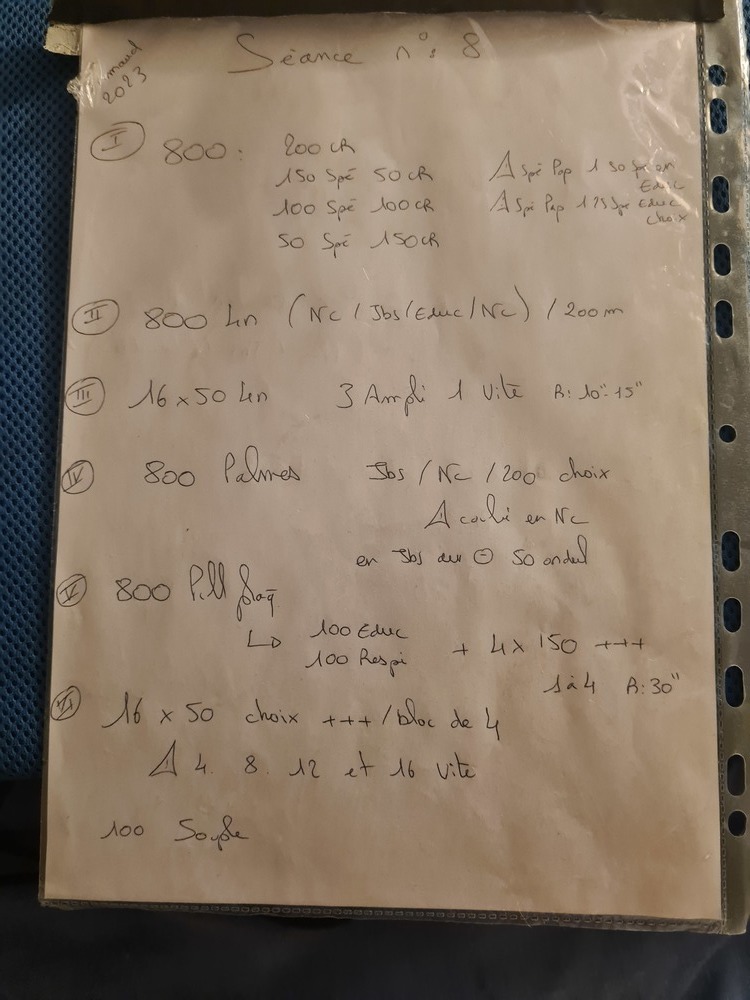 2023
Séance n°: 8
I 800: 200 CR
150 Spé 50 CR
100 Spé 100 CR
50 Spé 150 CR
⚠ Spé Pap 1 50 Spé en
Educ
⚠ Spé Pap 1 25 Spé Educ
choix
II 800 4n (Nc / Jbs / Educ / Nc) / 200m
III 16 x 50 4n 3 Ampli 1 Vite R: 10"-15"
IV 800 Palmes Jbs / Nc / 200 choix
⚠ coulé en Nc
en Jbs au ⊖ 50 ondul
V 800 Pull plaq
↳ 100 Educ
100 Respi + 4 x 150 +++
1 à 4 R: 30"
VI 16 x 50 choix +++ / bloc de 4
⚠ 4. 8. 12 et 16 Vite
100 Souple